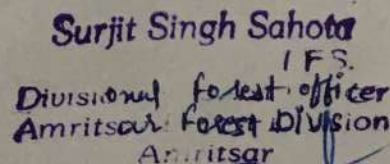 Surjit Singh Sahota
I F S.
Divisional forest officer
Amritsar Forest Division
Amritsar